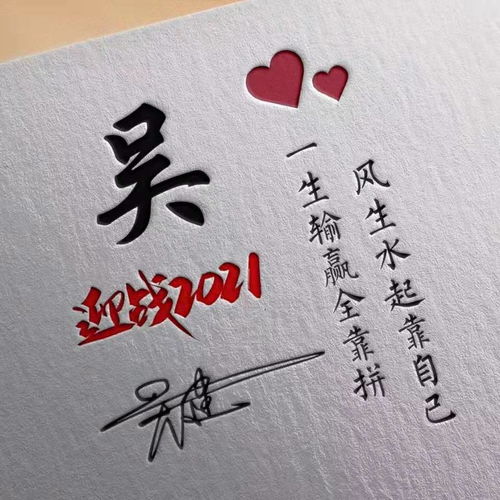 吴
迎战2021
吴建
风生水起靠自己
一生输赢全靠拼